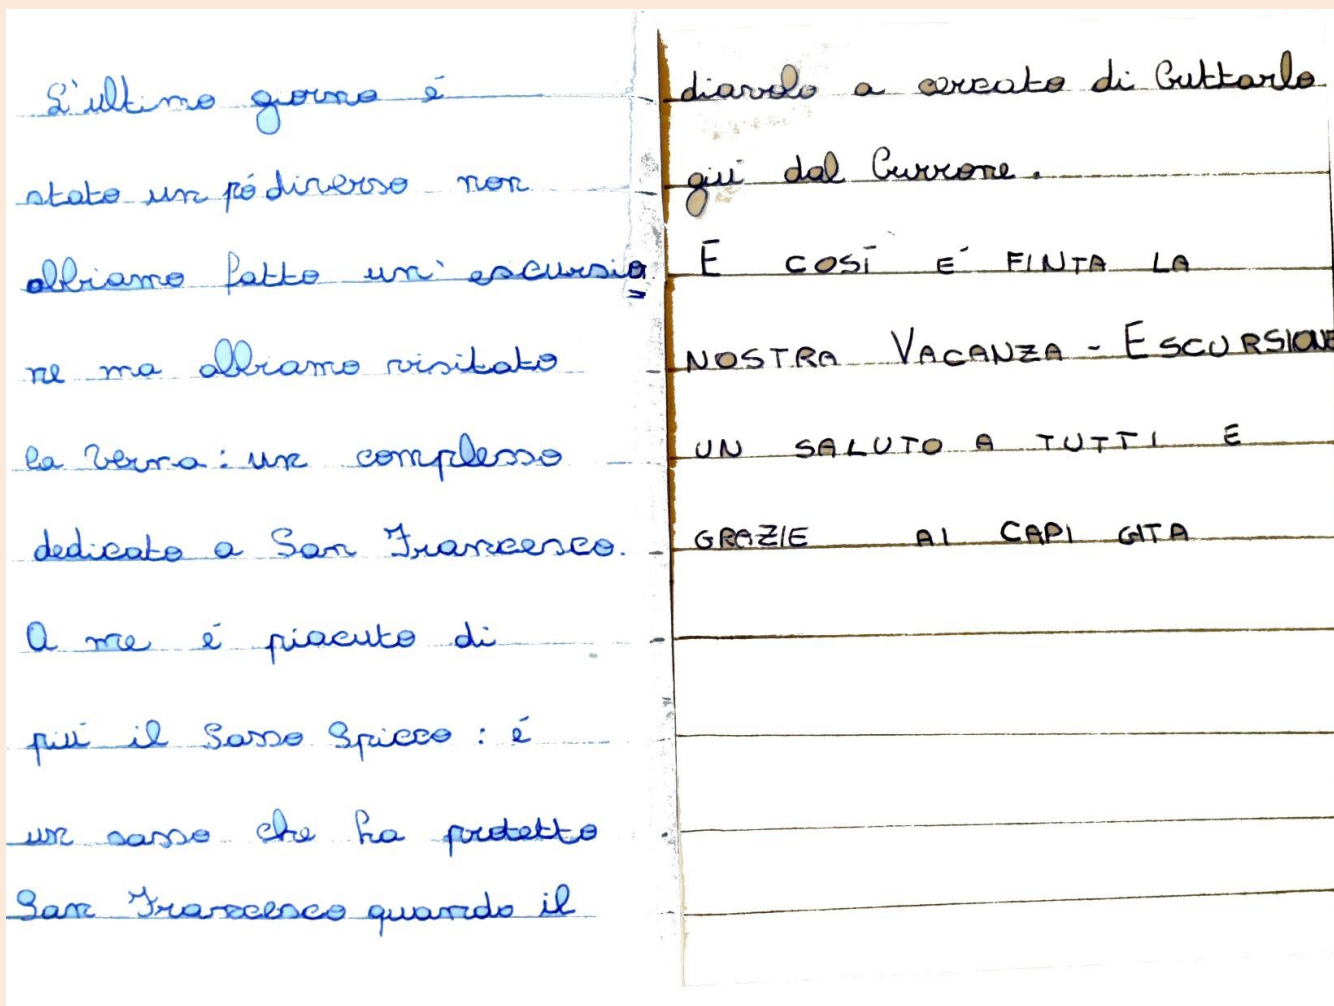 L'ultimo giorno é
stato un pó diverso non
abbiamo fatto un' escursio
ne ma abbiamo visitato
la Verna: un complesso
dedicato a San Francesco.
A me é piacuto di
piú il Sasso Spicco: é
un sasso che ha protetto
San Francesco quando il
diavolo a cercato di buttarlo
giú dal burrone.
E COSÍ E' FINTA LA
NOSTRA VACANZA - ESCURSIONE
UN SALUTO A TUTTI E
GRAZIE AI CAPI GITA